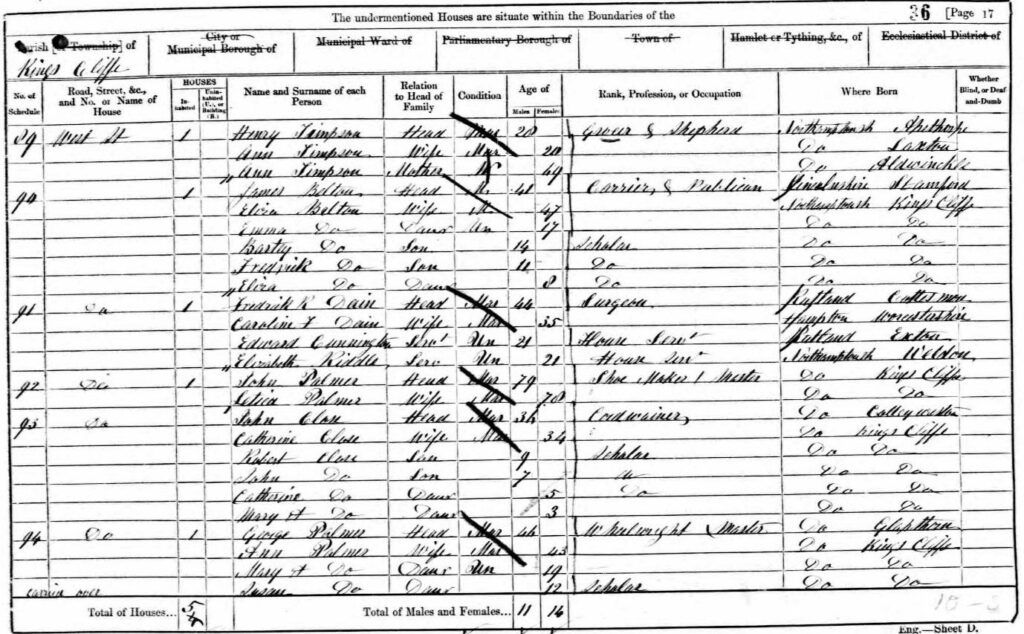 The undermentioned Houses are situate within the Boundaries of the
36 [Page 17
Parish [or Township] of
City or Municipal Borough of
Municipal Ward of
Parliamentary Borough of
Town of
Hamlet or Tything, &c., of
Ecclesiastical District of
Kings Cliffe
No. of Schedule
Road, Street, &c., and No. or Name of House
HOUSES
In-habited
Unin-habited (U.), or Building (B.)
Name and Surname of each Person
Relation to Head of Family
Condition
Age of
Males
Females
Rank, Profession, or Occupation
Where Born
Whether Blind, or Deaf-and-Dumb
89 West St 1 Henry Timpson Head Mar 28 Grocer & Shepherd Northamptonsh Apethorpe
Ann Timpson Wife Mar 20 Do Laxton
Ann Timpson Mother W 69 Do Aldwinckle
90 1 James Belton Head M 41 Carrier & Publican Lincolnshire Stamford
Eliza Belton Wife M 47 Northamptonsh Kings Cliffe
Emma Do Daur Un 17 Do Do
Do Son 14 Scholar Do Do
Fredrick Do Son 11 Do Do Do
Eliza Do Daur 8 Do Do
91 Do 1 Fredrik R Dain Head Mar 44 Surgeon Rutland
Caroline F Dain Wife Mar 35 Hampton Worcestershire
Edward Cunnington Serv Un 21 House Serv Rutland Exton
Elizabeth Riddle Serv Un 21 House Serv Northamptonsh Weldon
92 Do 1 John Palmer Head Mar 79 Shoe Maker Master Do Kings Cliffe
Letica Palmer Wife Mar 78 Do Do
93 Do John Close Head Mar 36 Cordwainer Do Colleyweston
Catherine Close Wife Mar 34 Do Kings Cliffe
Robert Close Son 9 Scholar Do Do
John Do Son 7 Do Do Do
Catherine Do Daur 5 Do Do Do
Mary A Do Daur 3 Do Do
94 Do 1 George Palmer Head Mar 46 Wheelwright Master Do Glapthorn
Ann Palmer Wife Mar 43 Do Kings Cliffe
Mary A Do Daur Un 19 Do Do
carried over Susan Do Daur 12 Scholar Do Do
Total of Houses... 5
Total of Males and Females... 11 14
Eng.—Sheet D.